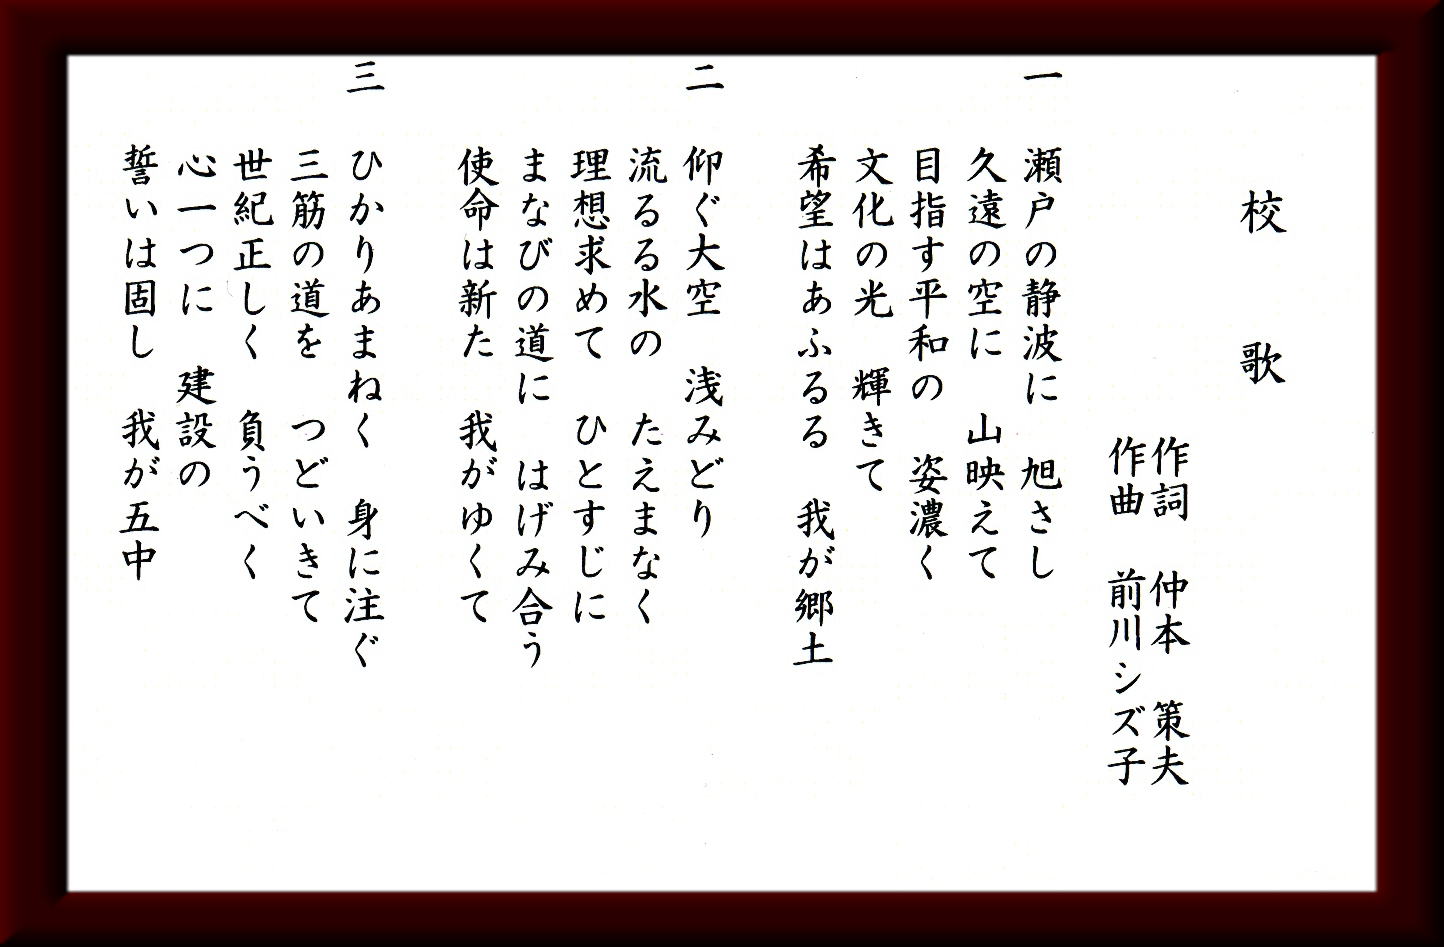 校　歌
作詞　仲本　策夫
作曲　前川シズ子
一　瀬戸の静波に　旭さし
久遠の空に　山映えて
目指す平和の　姿濃く
文化の光　輝きて
希望はあふるる　我が郷土
二　仰ぐ大空　浅みどり
流るる水の　たえまなく
理想求めて　ひとすじに
まなびの道に　はげみ合う
使命は新た　我がゆくて
三　ひかりあまねく　身に注ぐ
三筋の道を　つどいきて
世紀正しく　負うべく
心一つに　建設の
誓いは固し　我が五中